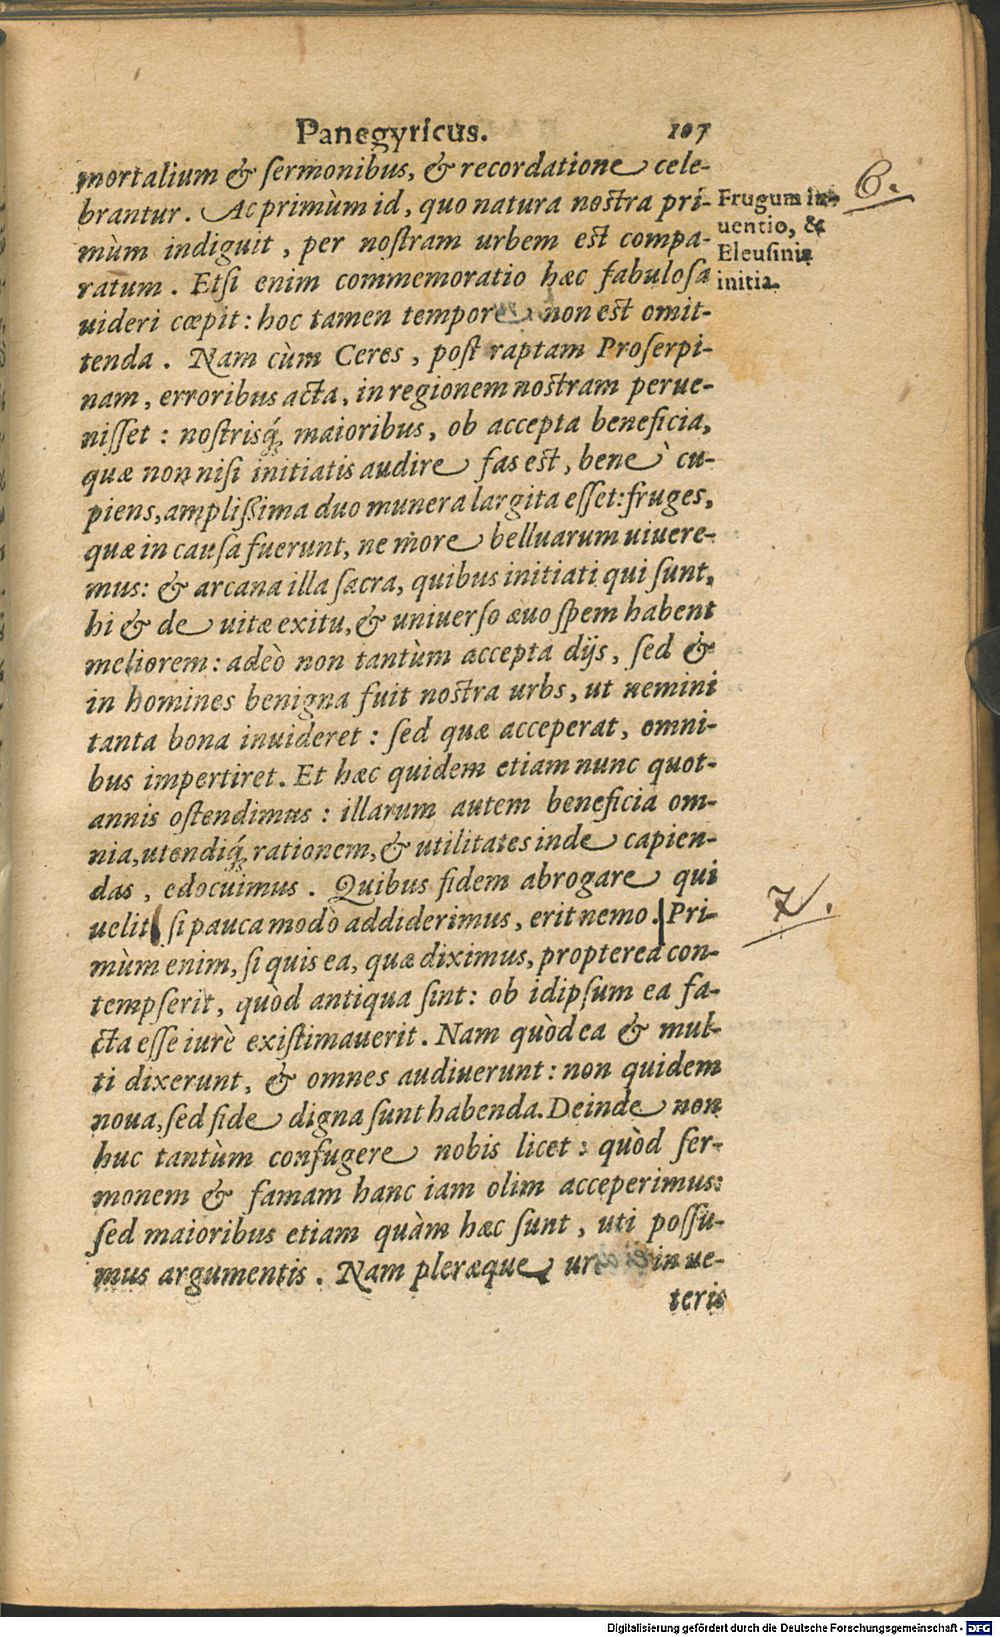 Panegyricus. 107
mortalium & sermonibus, & recordatione cele-
brantur. Ac primùm id, quo natura nostra pri-
mùm indiguit, per nostram urbem est compa-
ratum. Etsi enim commemoratio hæc fabulosa
uideri cœpit: hoc tamen tempore non est omit-
tenda. Nam cùm Ceres, post raptam Proserpi-
nam, erroribus acta, in regionem nostram perue-
nisset: nostrisq́; maioribus, ob accepta beneficia,
quæ non nisi initiatis audire fas est, bene cu-
piens, amplissima duo munera largita esset: fruges,
quæ in causa fuerunt, ne more belluarum uiuere-
mus: & arcana illa sacra, quibus initiati qui sunt,
hi & de uitæ exitu, & uniuerso æuo spem habent
meliorem: adeò non tantùm accepta dijs, sed &
in homines benigna fuit nostra urbs, ut nemini
tanta bona inuideret: sed quæ acceperat, omni-
bus impertiret. Et hæc quidem etiam nunc quot-
annis ostendimus: illarum autem beneficia om-
nia, utendiq́; rationem, & utilitates inde capien-
das, edocuimus. Quibus fidem abrogare qui
uelit si pauca modò addiderimus, erit nemo. Pri-
mùm enim, si quis ea, quæ diximus, propterea con-
tempserit, quòd antiqua sint: ob idipsum ea fa-
cta esse iurè existimauerit. Nam quòd ea & mul-
ti dixerunt, & omnes audiuerunt: non quidem
noua, sed fide digna sunt habenda. Deinde non
huc tantùm confugere nobis licet: quòd ser-
monem & famam hanc iam olim acceperimus:
sed maioribus etiam quàm hæc sunt, uti possu-
mus argumentis. Nam pleræque in ue-
teris
Frugum in-
uentio, &
Eleusinia
initia.
6.
7.
Digitalisierung gefördert durch die Deutsche Forschungsgemeinschaft - DFG